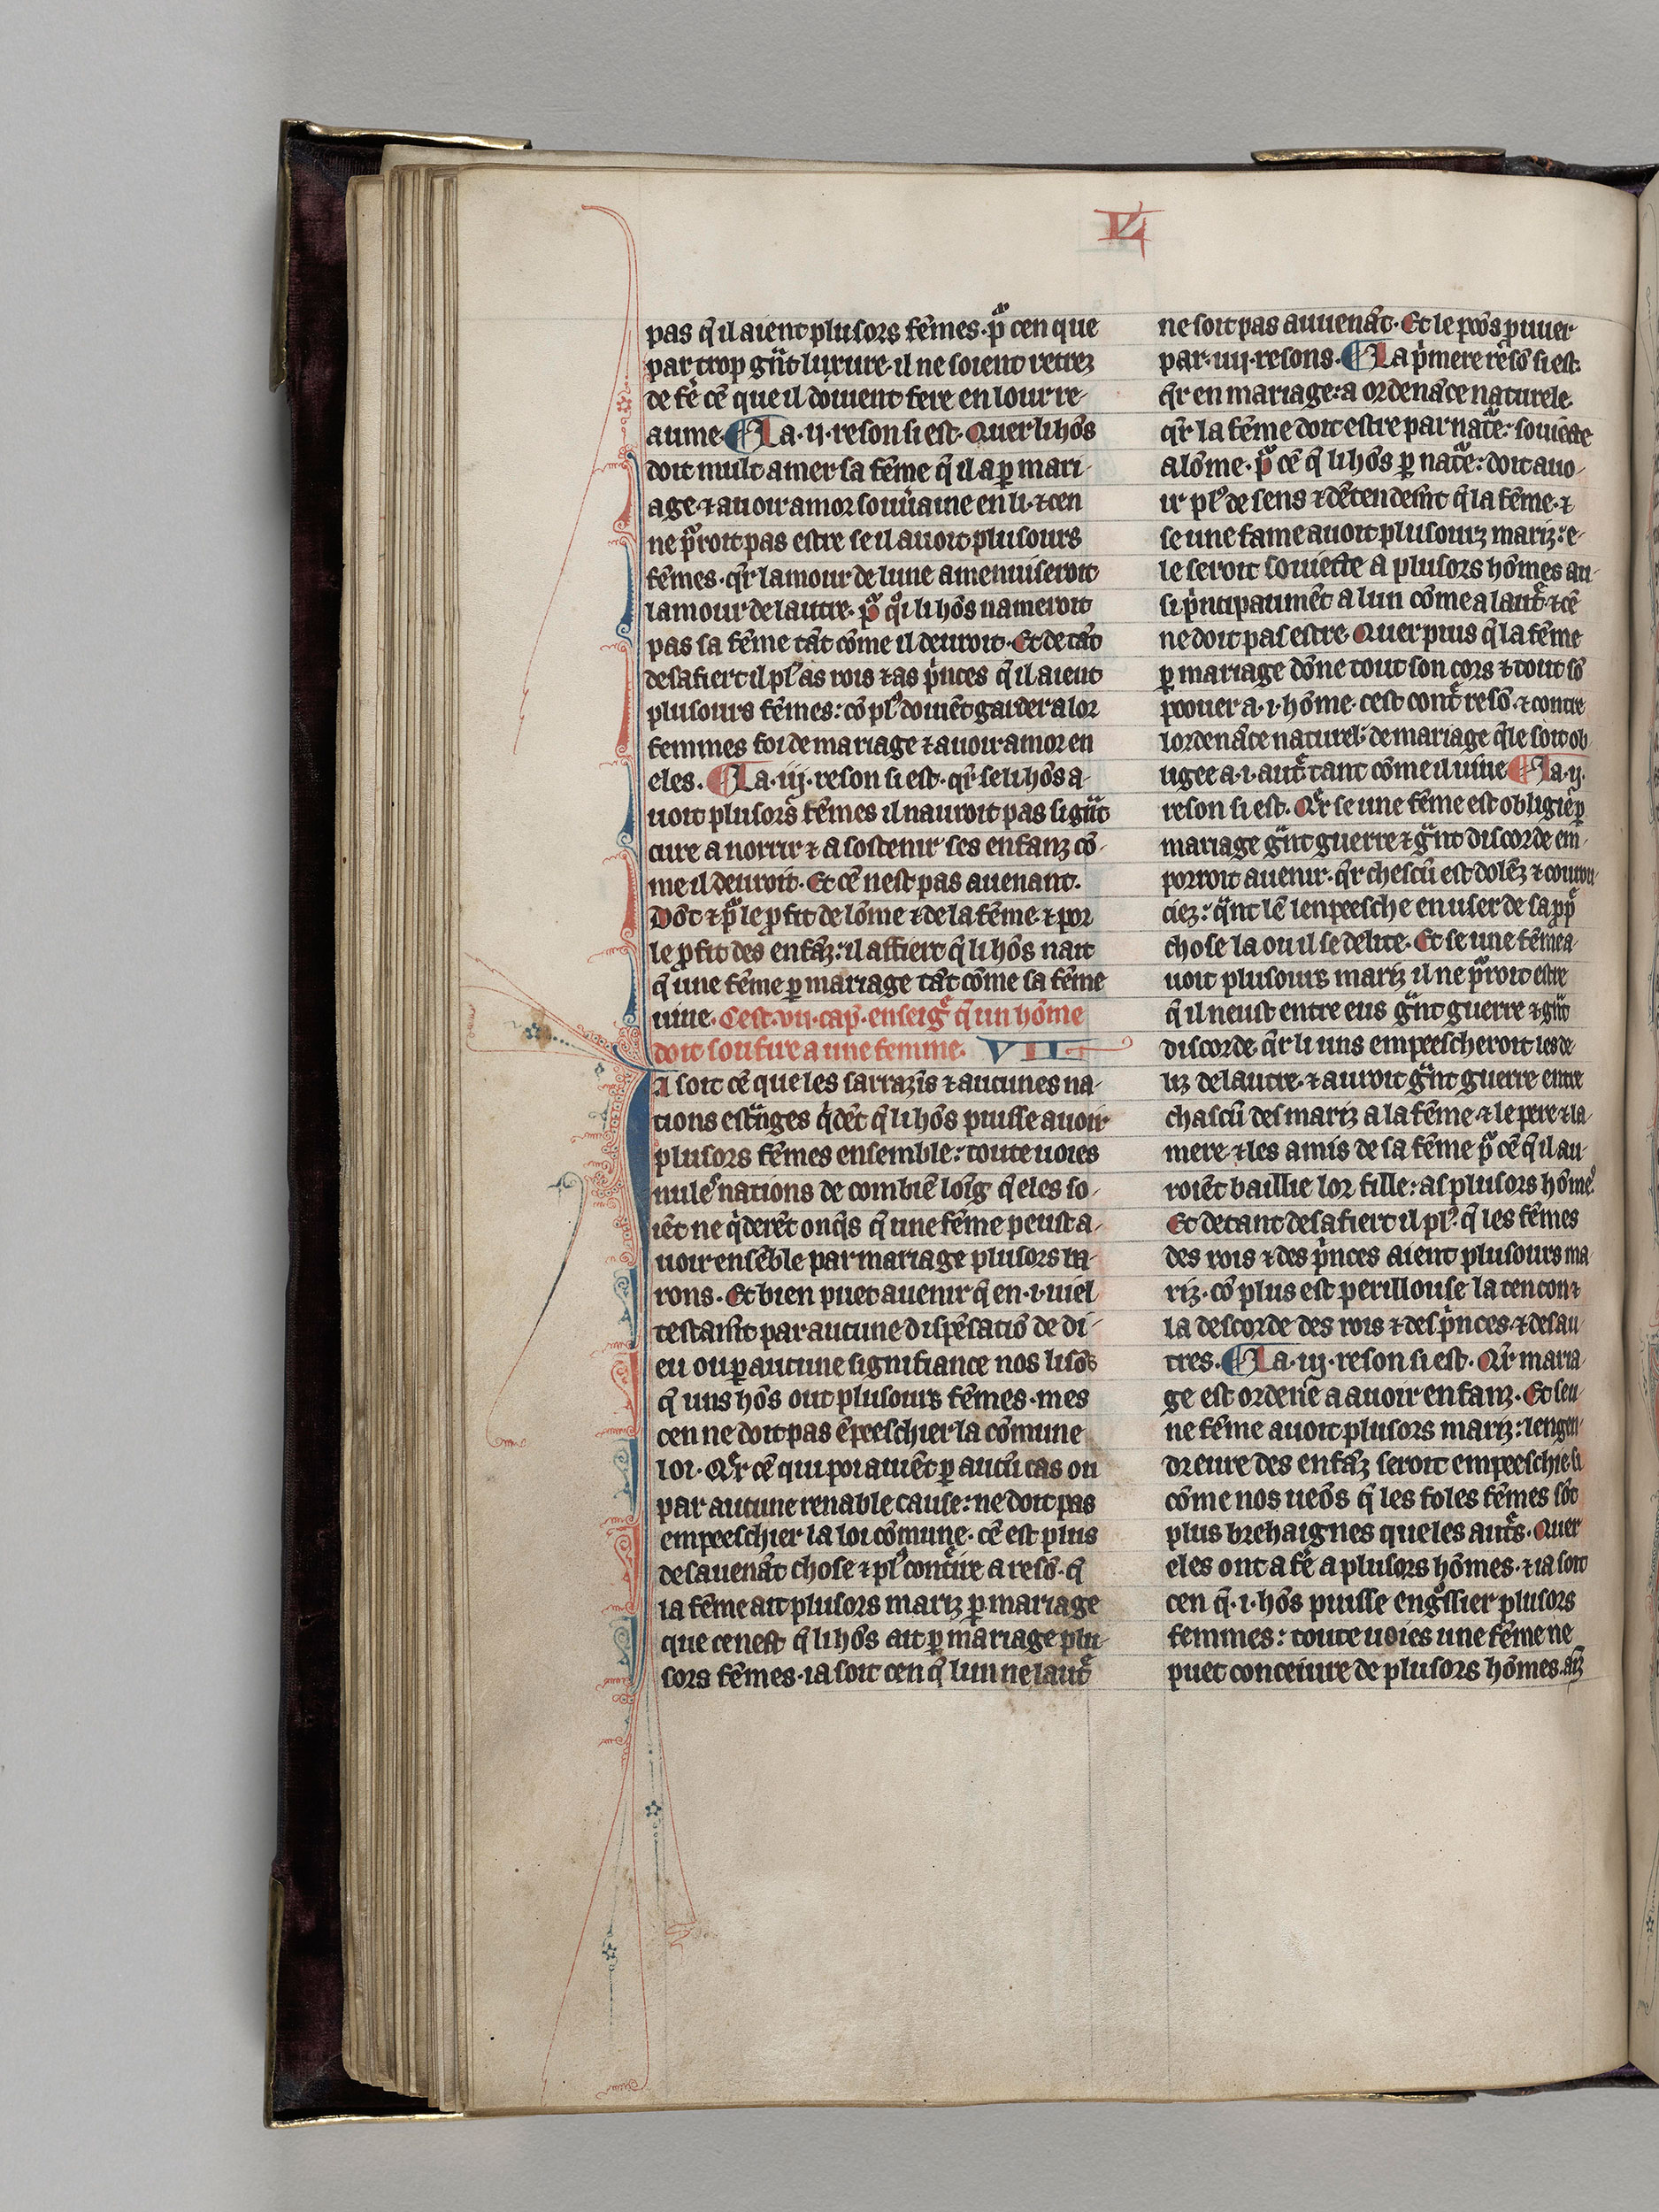 LI
pas q̃ il aient plusors fẽmes· pͣ cen que
par trop gͣnt luxure· il ne soient retrez
de fẽ cẽ que il doiuent fere en lour re-
aume· ¶ La ·ij· reson si est· Quer li hõs
doit mult amer sa fẽme q̃ il a ꝑ mari-
age· ⁊ auoir amor souũaine en li· ⁊ cen
ne pͣroit pas estre se il auoit plusours
fẽmes· qͣr lamour de lune amenuiseroit
lamour de lautre· pͣ qͦi li hõs nameroit
pas sa fẽme tãt cõme il deuroit· Et de tãt
desafiert il plꝰ as rois ⁊ as pͥnces q̃ il aient
plusours fẽmes: cõ plꝰ doiuẽt garder a lor
femmes foi de mariage ⁊ auoir amor en
eles· ¶ La ·iij· reson si est· qͣr se li hõs a-
uoit plusors fẽmes il nauroit pas si gͣnt
cure a norrir ⁊ a sostenir ses enfanz cõ-
me il deuroit· Et cẽ nest pas auenant·
Dõt ⁊ pͣ le ꝓfit de lõme ⁊ de la fẽme ⁊ por
le ꝓfit des enfãz: il affiert q̃ li hõs nait
q̃ une fẽme ꝑ mariage tãt cõme sa fẽme
uiue· Cest· vii· cap̃· enseigͤ q̃ un hõme
doit soufire a une femme· VII·
Ja soit cẽ que les sarrazĩs ⁊ aucunes na-
tions estͣnges qͥdẽt q̃ li hõs puisse auoir
plusors fẽmes ensemble: toute uoies
nuleˢ nations de combiẽ loĩg q̃ eles so-
iẽt ne qͥderẽt onq̃s q̃ une fẽme peust a-
uoir ensẽble par mariage plusors ba-
rons· Et bien puet auenir q̃ en ·i· uiel
testamt̃ par aucune dispẽsatiõ de di-
eu ou ꝑ aucune signifiance nos lisõs
q̃ uns hõs out plusours fẽmes· mes
cen ne doit pas ẽpeeschier la cõmune
loi· Qͣr cẽ qui poi auiẽt ꝑ aucũ cas ou
par aucune renable cause: ne doit pas
empeeschier la loi cõmune· cẽ est plus
desauenãt chose ⁊ plꝰ contͣire a resõ· q̃
la fẽme ait plusors mariz ꝑ mariage
que cen est q̃ li hõs ait ꝑ mariage plu-
sors fẽmes· ia soit cen q̃ lun ne lautͤ
ne soit pas auuenãt· Et le poõs prouuer
par ·iiij· resons· ¶ La pͥmere resõ si est·
qͣr en mariage: a ordenãce naturele·
qͣr la fẽme doit estre par natͣe: souiecte
a lõme· pͣ cẽ q̃ li hõs ꝑ natͣe: doit auo-
ir plꝰ de sens ⁊ dẽtendemt̃ q̃ la fẽme· ⁊
se une fame auoit plusourz mariz: e-
le seroit souiecte a plusors hõmes au-
si pͥncipaumẽt a lun cõme a lautͤ· ⁊ cẽ
ne doit pas estre· Quer puis q̃ la fẽme
ꝑ mariage dõne tout son cors ⁊ tout sõ
poouer a ·i· hõme· cest contͤ resõ· ⁊ contre
lordenãce naturel· de mariage q̃le soit ob-
ligee a ·i· autͤ tant cõme il uiue ¶ La ·ij·
reson si est· Qͣr se une fẽme est obligie ꝑ
mariage gͣnt guerre ⁊ gͣnt discorde em-
porroit auenir· qͣr chescũ est dolẽz ⁊ courou-
ciez: qͣnt lẽ lenpeesche en user de sa ꝓpͤ
chose la ou il se delite· Et se une fẽme a-
uoit plusours mariz il ne pͣroit estre
q̃ il neust entre eus gͣnt guerre ⁊ gͣnt
discorde· qͣr li uns empeescheroit les de-
liz de lautre· ⁊ auroit gͣnt guerre entre
chascũ des mariz a la fẽme· ⁊ le pere ⁊ la
mere· ⁊ les amis de la fẽme pͣ cẽ q̃ il au-
roiẽt baillie lor fille: as plusors hõmeꝰ·
Et de tant desafiert il plꝰ· q̃ les fẽmes
des rois ⁊ des pͥnces aient plusours ma-
riz· cõ plus est perillouse la tencon ⁊
la descorde des rois ⁊ des pͥnces· ⁊ des au-
tres· ¶ La ·iij· reson si est· Qͣr maria-
ge est ordene a auoir enfanz· Et se u-
ne fẽme auoit plusors mariz: lengen-
dreure des enfãz seroit empeeschie· si
cõme nos ueõs q̃ les foles fẽmes sõt
plus brehaignes que les autͤs· Quer
eles ont a fẽ a plusors hõmes· ⁊ ia soit
cen q̃ ·i· hõs puisse engͦssier plusors
femmes: toute uoies une fẽme ne
puet conceiure de plusors hõmes· aiz